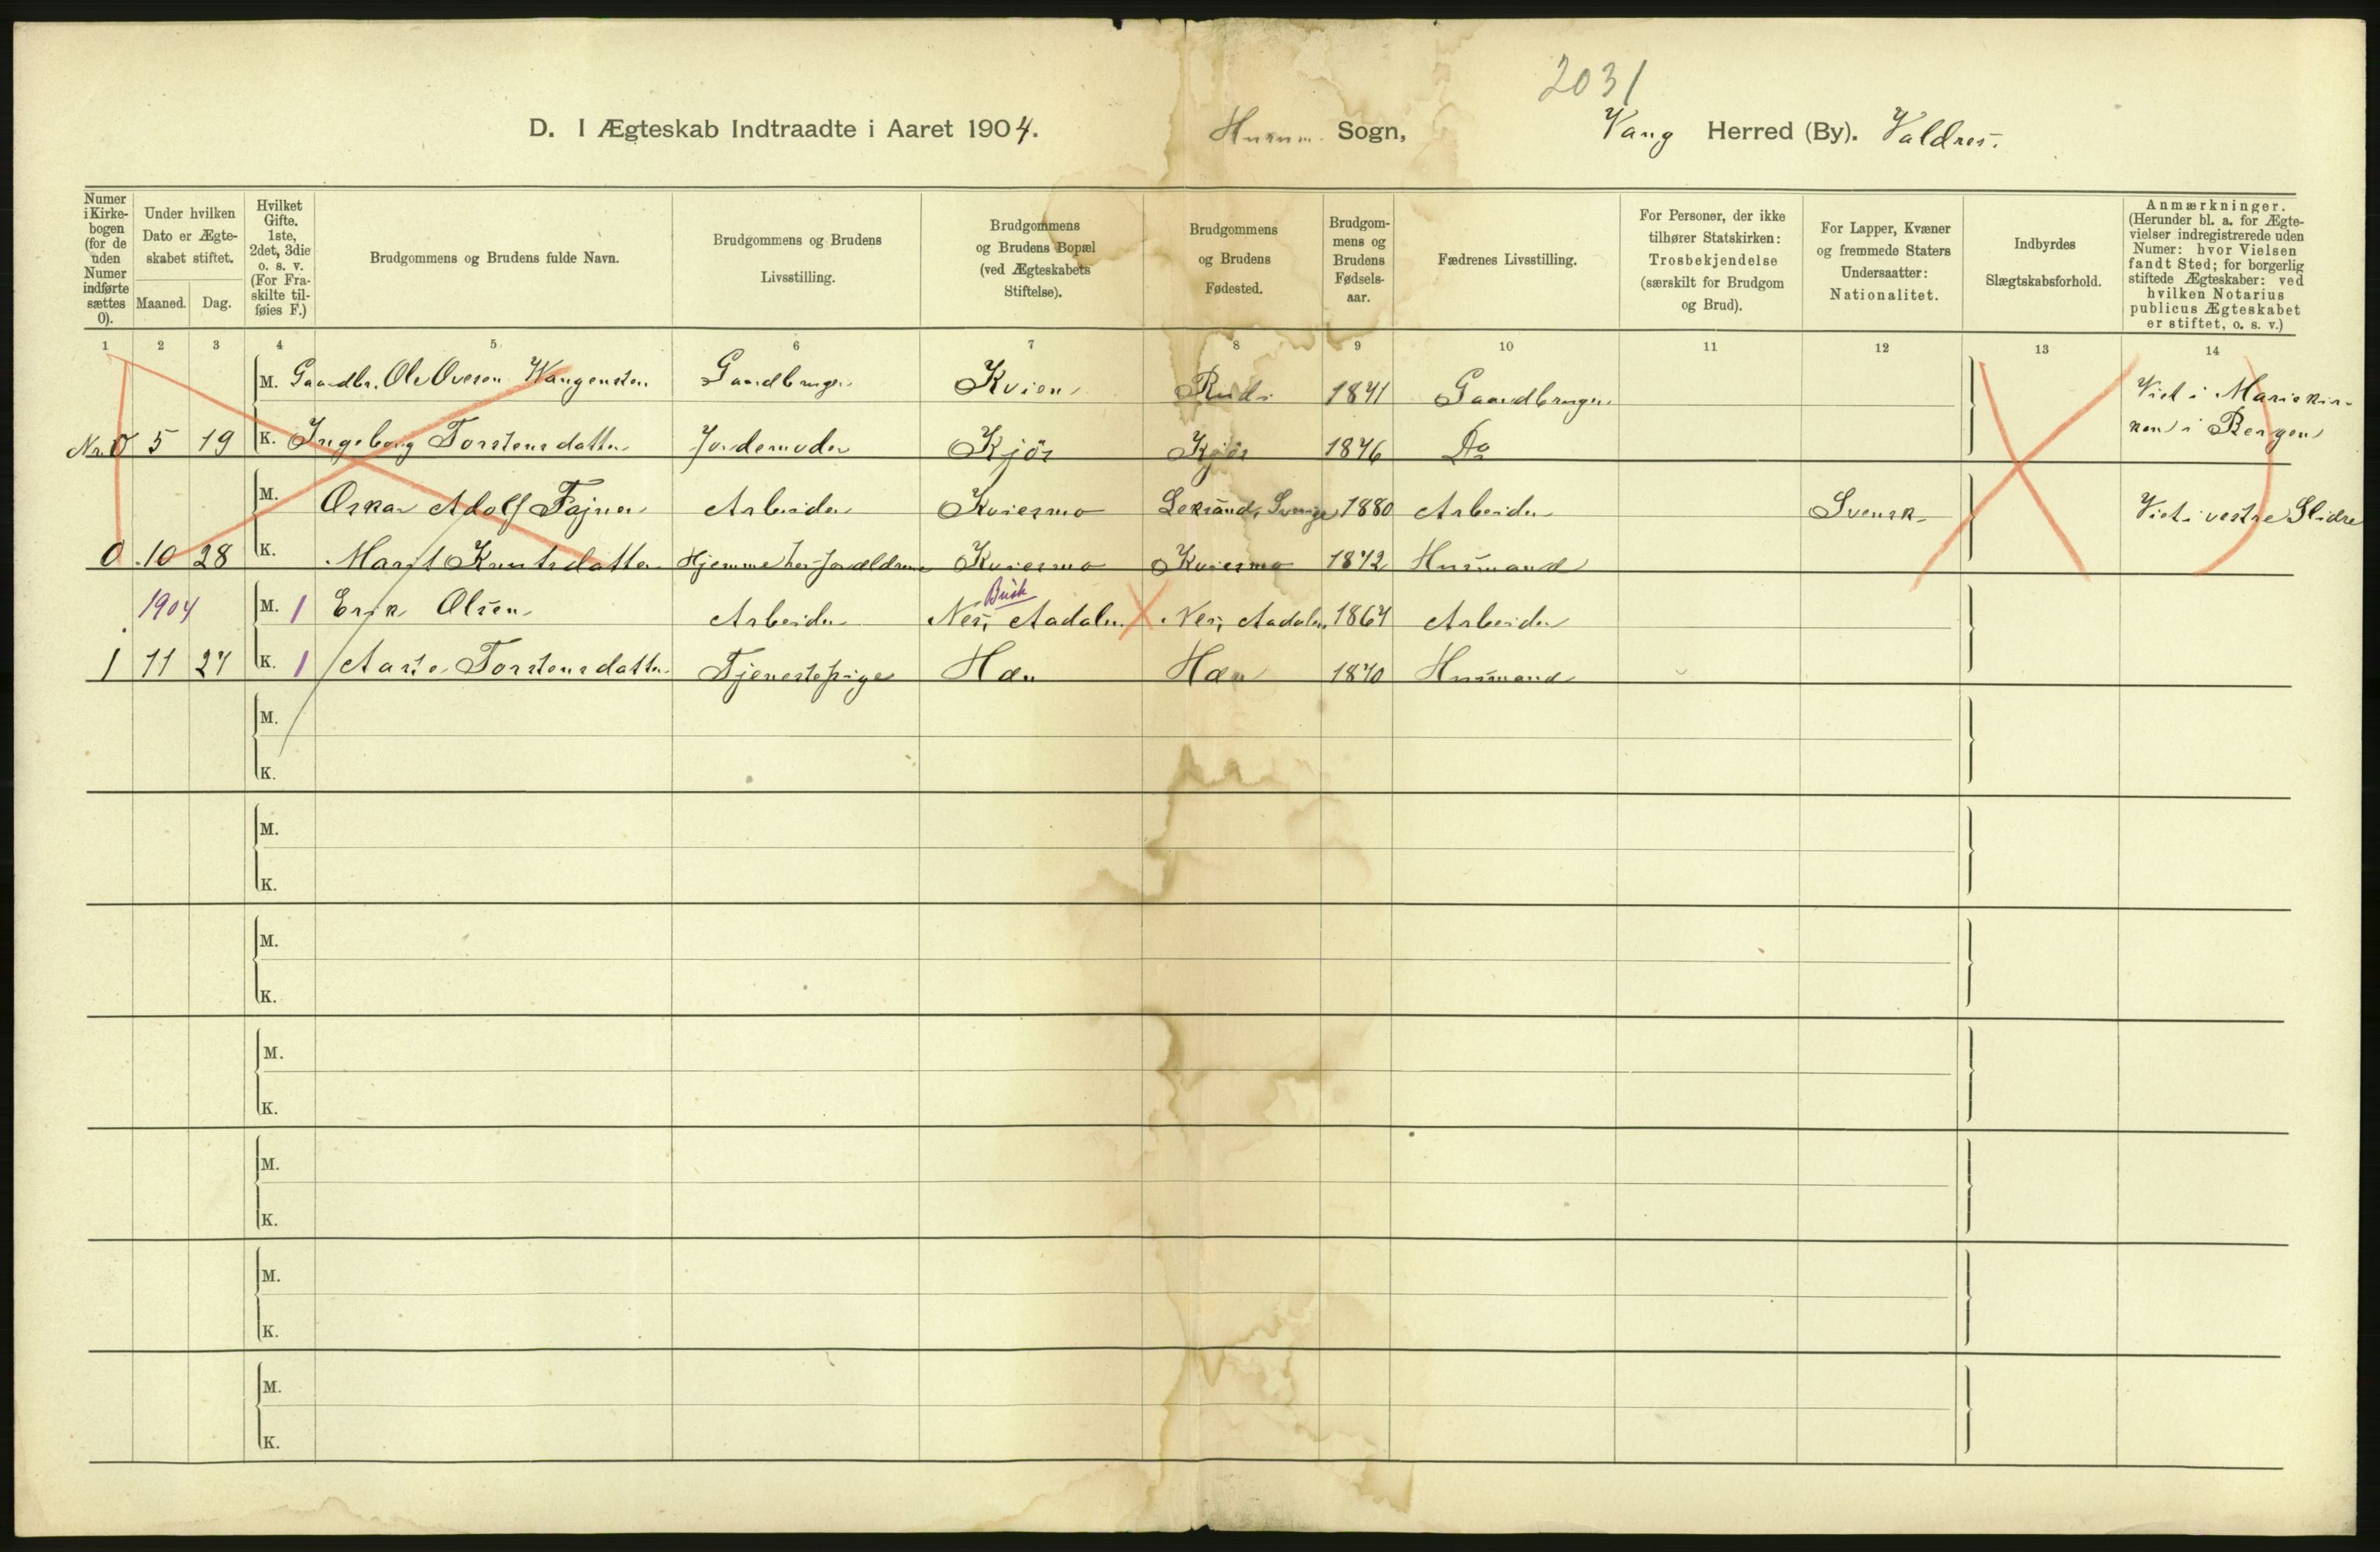 2031
D. I Ægteskab Indtraadte i Aaret 1904. Hurum Sogn, Vang Herred (By). Valdres.
Numer i Kirkebogen (for de uden Numer indførte sættes 0).
Under hvilken Dato er Ægteskabet stiftet.
Maaned. Dag.
Hvilket Gifte. 1ste, 2det, 3die o. s. v. (For Fraskilte tilføies F.)
Brudgommens og Brudens fulde Navn.
Brudgommens og Brudens Livsstilling.
Brudgommens og Brudens Bopæl (ved Ægteskabets Stiftelse).
Brudgommens og Brudens Fødested.
Brudgommens og Brudens Fødselsaar.
Fædrenes Livsstilling.
For Personer, der ikke tilhører Statskirken: Trosbekjendelse (særskilt for Brudgom og Brud).
For Lapper, Kvæner og fremmede Staters Undersaatter: Nationalitet.
Indbyrdes Slægtskabsforhold.
Anmærkninger. (Herunder bl. a. for Ægtevielser indregistrerede uden Numer: hvor Vielsen fandt Sted; for borgerlig stiftede Ægteskaber: ved hvilken Notarius publicus Ægteskabet er stiftet, o. s. v.)
1 2 3 4 5 6 7 8 9 10 11 12 13 14
M. Gaardbr. Ole Ovesen Wangensten Gaardbruger Kvien Rudi 1871 Gaardbruger Viet i Mariekir-
Nr. 0 5 19 K. Ingeborg Torstensdatter Jordemoder Kjös Kjös 1876 Do ken i Bergen
M. Oskar Adolf Fajner Arbeider Kviesmo Leksand, Sverige 1880 Arbeider Svensk Viet i vestre Slidre
0 10 28 K. Marit Knutsdatter Hjemme hos forældrene Kviesmo Kviesmo 1872 Husmand
Busk
1904 M. 1 Erik Olsen Arbeider Nes, Aadalen Nes, Aadalen 1867 Arbeider
1 11 27 K. 1 Aaste Torstensdatter Tjenestepige Hæn Hæn 1870 Husmand
M.
K.
M.
K.
M.
K.
M.
K.
M.
K.
M.
K.
M.
K.